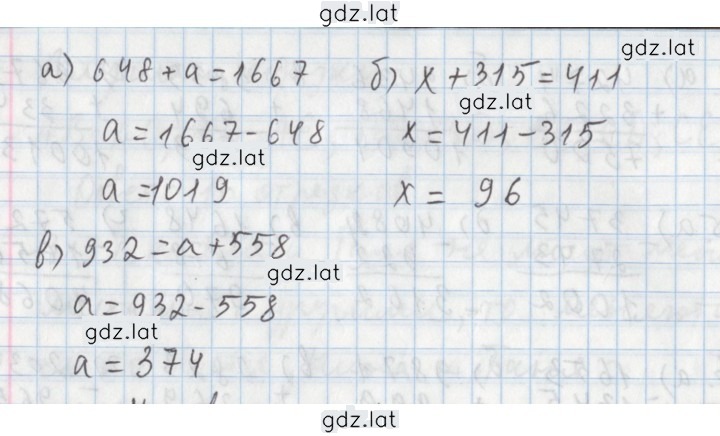 gdz.lat
gdz.lat
а) 648 + a = 1667
a = 1667 - 648
gdz.lat
a = 1019
б) x + 315 = 411
gdz.lat
x = 411 - 315
x = 96
в) 932 = a + 558
gdz.lat
a = 932 - 558
gdz.lat
a = 374
gdz.lat